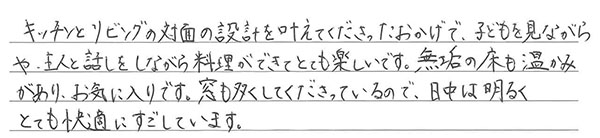 キッチンとリビングの対面の設計を叶えてくださったおかげで、子どもを見ながら
や、主人と話しをしながら料理ができてとても楽しいです。無垢の床も温かみ
があり、お気に入りです。窓も多くしてくださっているので、日中は明るく
とても快適にすごしています。